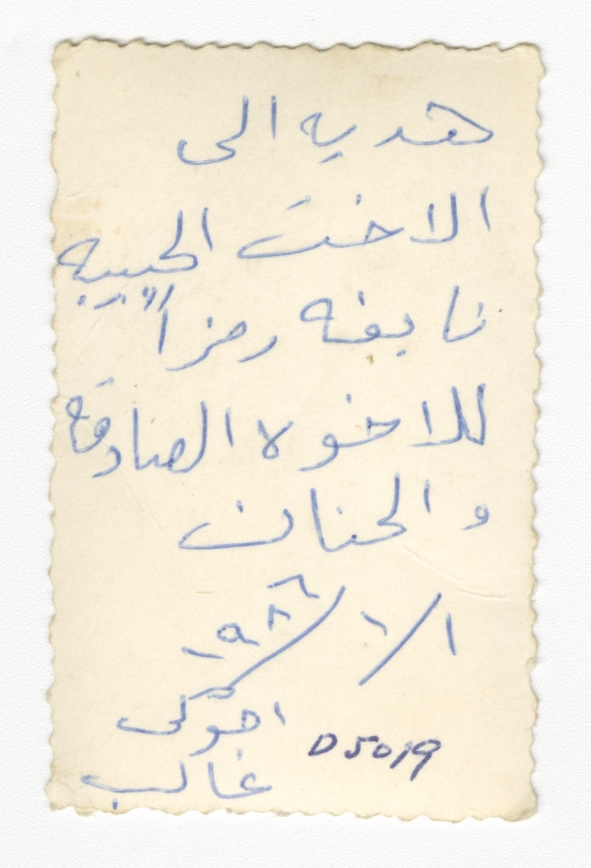 هديه الى
الاخت الحبيبه
نايفه رمزاً
للاخوه الصادقه
والحنان
١/١/١٩٨٦
اخوكي
غالب
D5019